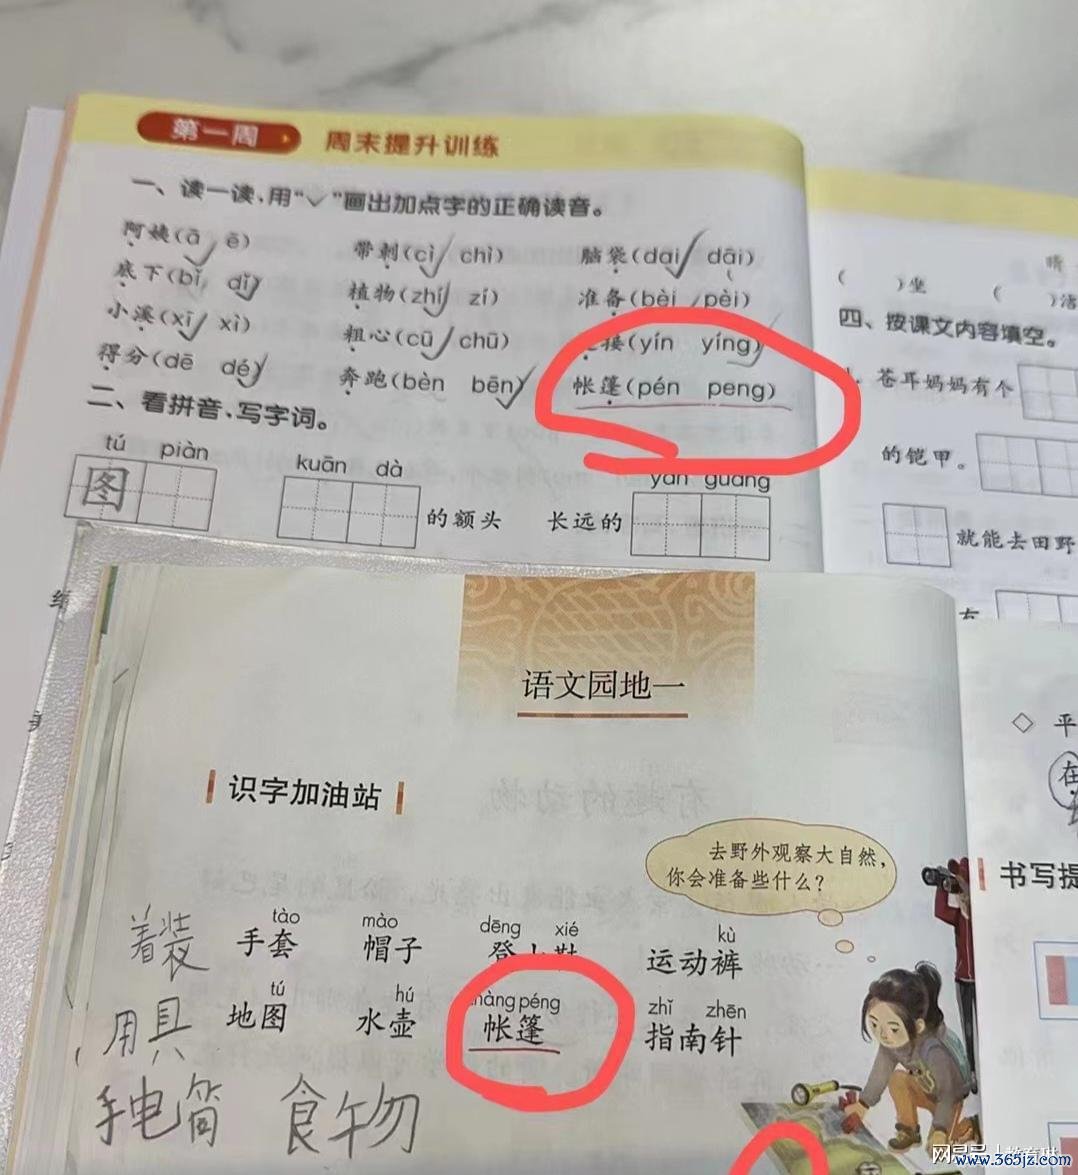 第一周 周末提升训练
一、读一读,用“✓”画出加点字的正确读音。
阿姨(ā ē) 带刺(cì chì) 脑袋(dai dāi)
底下(bǐ dǐ) 植物(zhí zí) 准备(bèi pèi)
小溪(xī xì) 粗心(cū chū) 接(yín yíng)
得分(dē dé) 奔跑(bèn bēn) 帐篷(pén peng)
二、看拼音、写字词。
tú piàn kuān dà yǎn guāng
图 的额头 长远的
( )坐 ( )
四、按课文内容填空。
苍耳妈妈有个
的铠甲。
就能去田野
语文园地一
识字加油站
去野外观察大自然,
你会准备些什么?
着装
tào mào dēng xié kù
手套 帽子 登山鞋 运动裤
用具
tú hú zhàng péng zhǐ zhēn
地图 水壶 帐篷 指南针
手电筒 食物
◇ 平
在
书写提
www.365jz.com